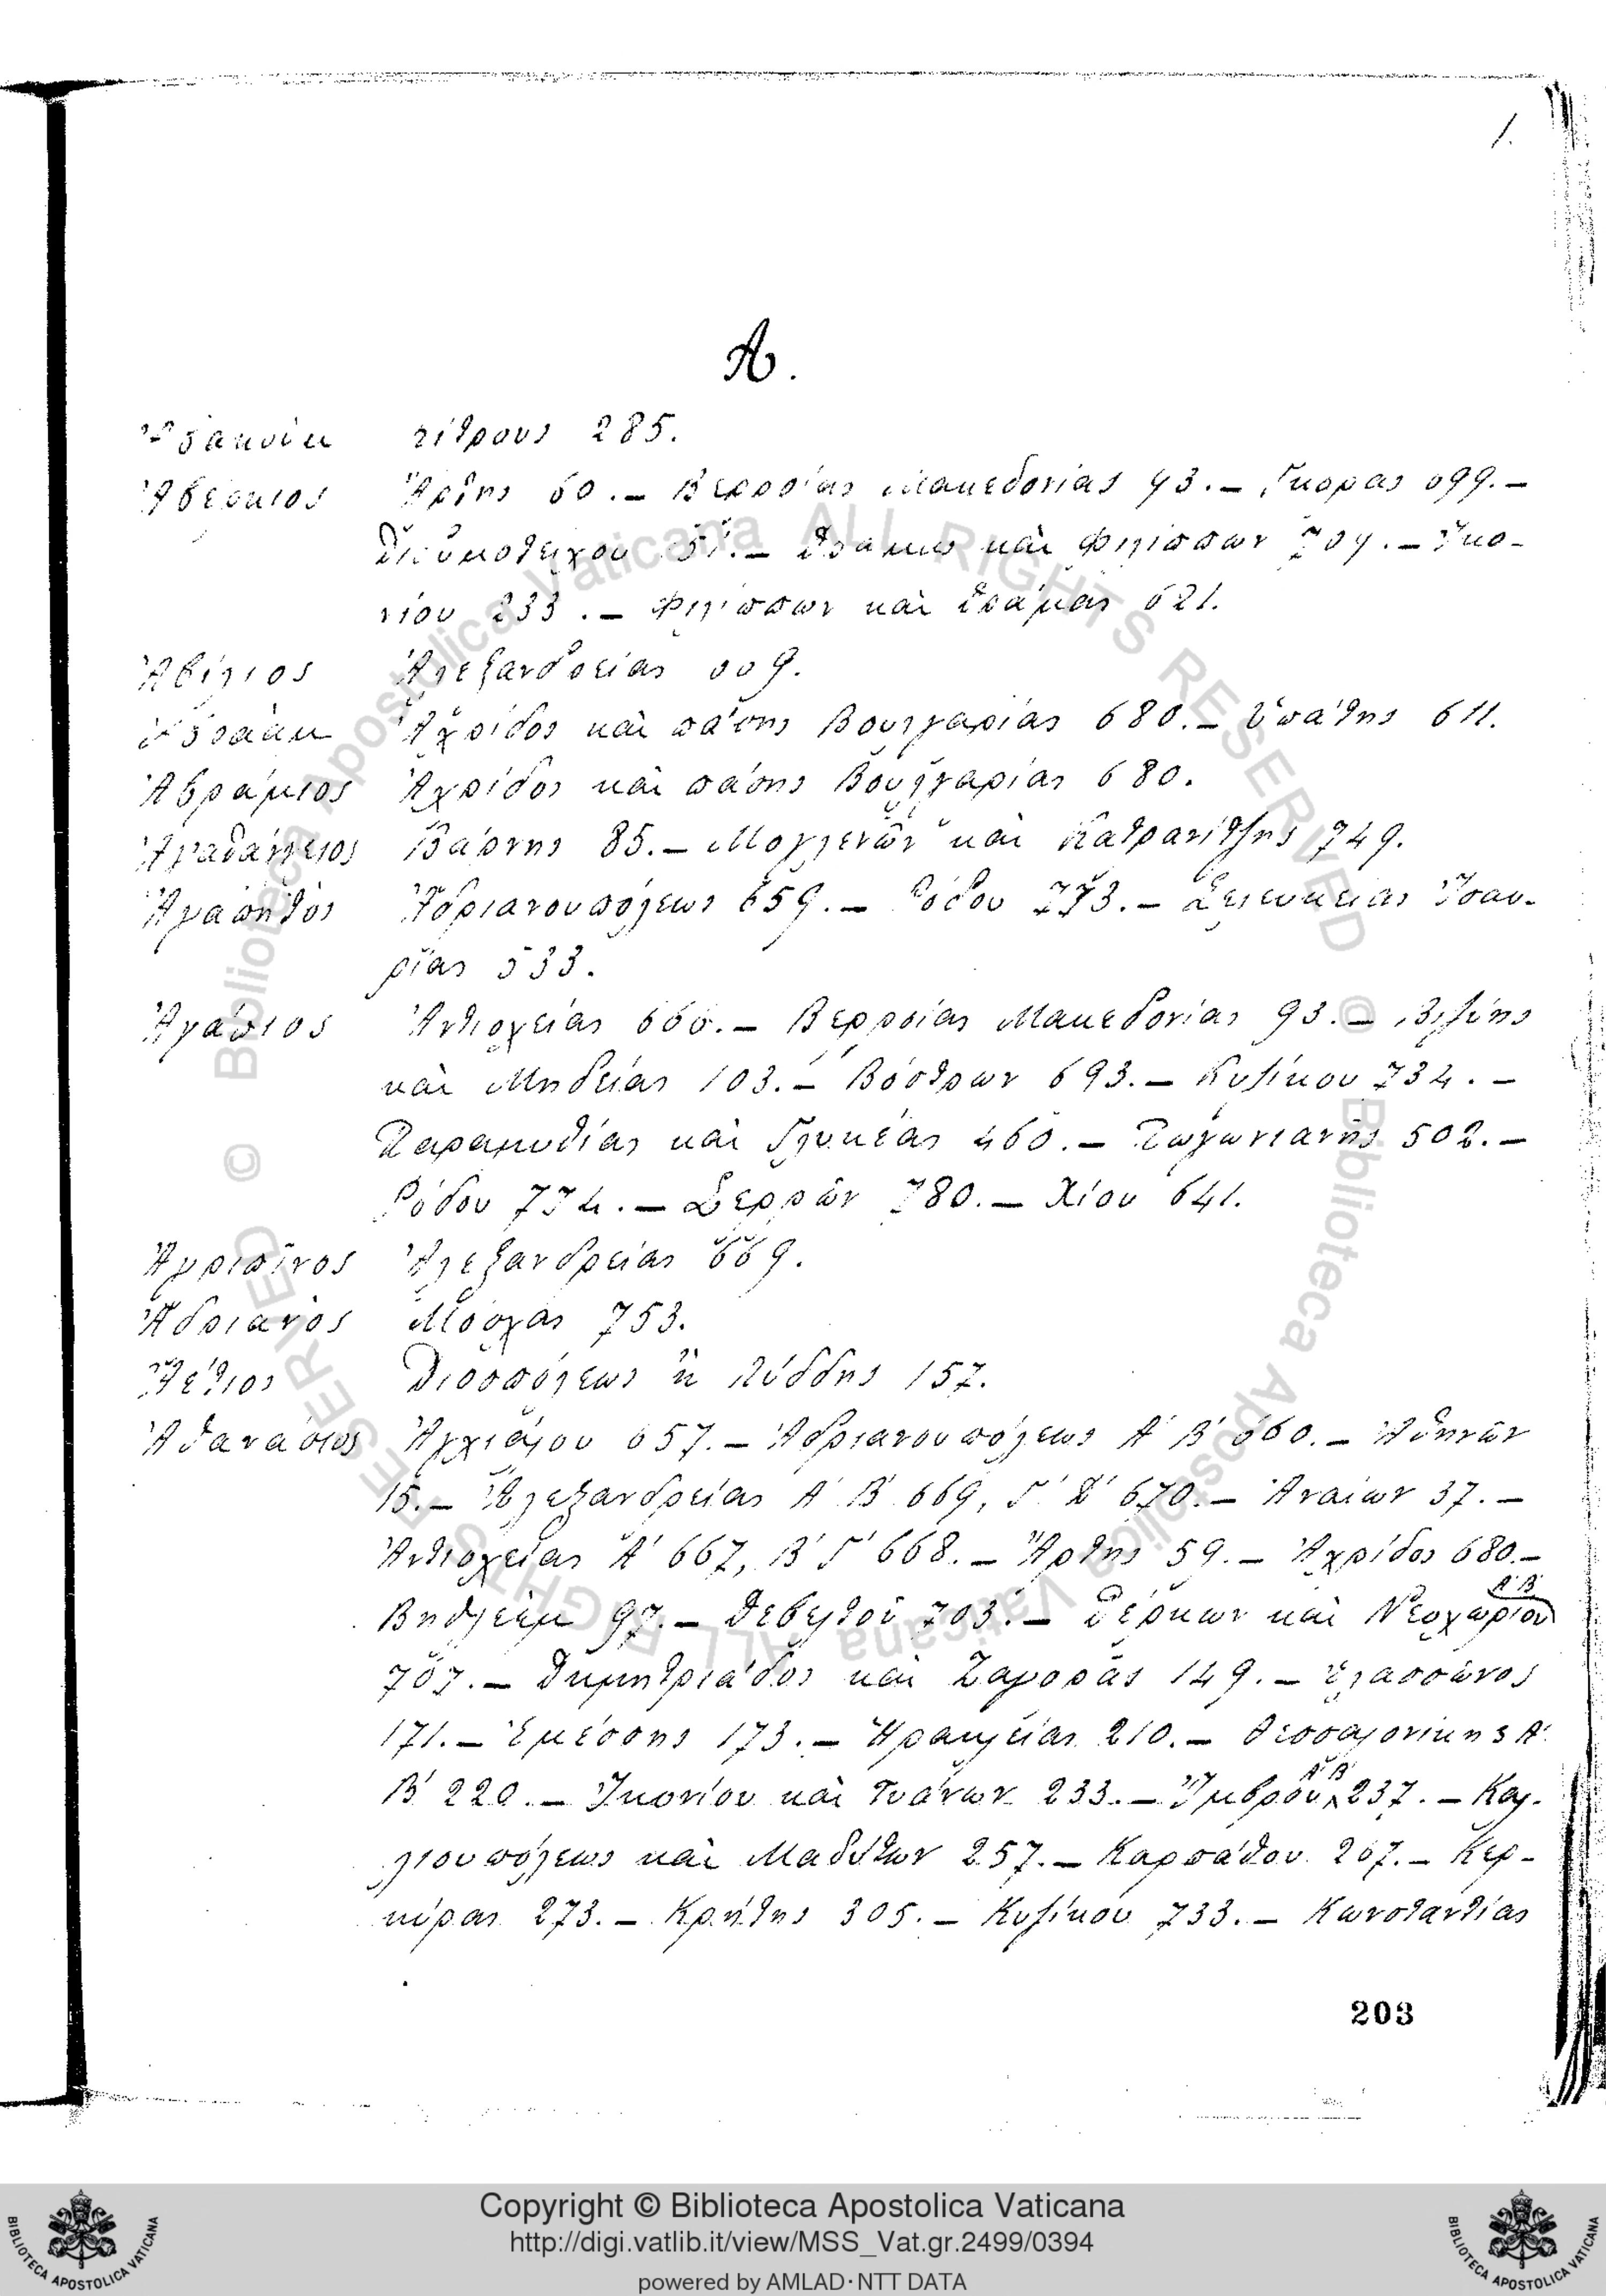 1.
Α.
Ἀββακοὺμ Κίτρους 285.
Ἀβέρκιος Ἄρτης 60.— Βερροίας Μακεδονίας 93.— Γκόρας 699.—
Διδυμοτείχου 151.— Δράμας καὶ Φιλίππων 709.— Ἰκο-
νίου 233.— Φιλίππων καὶ Δράμας 621.
Ἀβίλιος Ἀλεξανδρείας 669.
Ἀβραὰμ Ἀχρίδος καὶ πάσης Βουλγαρίας 680.— Ὑπάτης 611.
Ἀβράμιος Ἀχρίδος καὶ πάσης Βουλγαρίας 680.
Ἀγαθάγγελος Βάρνης 85.— Μογλενῶν καὶ Κατρανίτζης 749.
Ἀγαπητὸς Ἀδριανουπόλεως 659.— Ῥόδου 773.— Σελευκείας Ἰσαυ-
ρίας 533.
Ἀγάπιος Ἀντιοχείας 666.— Βερροίας Μακεδονίας 93.— Βιζύης
καὶ Μηδείας 103.— Βόστρων 693.— Κυζίκου 734.—
Παραμυθίας καὶ Γλυκέας 460.— Πωγωνιανῆς 502.—
Ῥόδου 774.— Σερρῶν 780.— Χίου 641.
Ἀγριπῖνος Ἀλεξανδρείας 669.
Ἀδριανὸς Μόσχας 753.
Ἀέτιος Διοσπόλεως ἢ Λύδδης 157.
Ἀθανάσιος Ἀγχιάλου 657.— Ἀδριανουπόλεως Α΄ Β΄ 660.— Ἀθηνῶν
15.— Ἀλεξανδρείας Α΄ Β΄ 669, Γ΄ Δ΄ 670.— Ἀναίων 37.—
Ἀντιοχείας Α΄ 667, Β΄ Γ΄ 668.— Ἄρτης 59.— Ἀχρίδος 680.—
Βηθλεὲμ 97.— Δεβελτοῦ 703.— Δέρκων καὶ Νεοχωρίου Α΄ Β΄
707.— Δημητριάδος καὶ Ζαγορᾶς 149.— Ἐλασσῶνος
171.— Ἐμέσσης 173.— Ἡρακλείας 210.— Θεσσαλονίκης Α΄
Β΄ 220.— Ἰκονίου καὶ Τυάνων 233.— Ἴμβρου Α΄ Β΄ 237.— Καλ-
λιουπόλεως καὶ Μαδύτων 257.— Καρπάθου 267.— Κερ-
κύρας 273.— Κρήτης 305.— Κυζίκου 733.— Κωνσταντίας
203
© Biblioteca Apostolica Vaticana ALL RIGHTS RESERVED
© Biblioteca Apostolica Vaticana ALL RIGHTS RESERVED
Copyright © Biblioteca Apostolica Vaticana
http://digi.vatlib.it/view/MSS_Vat.gr.2499/0394
powered by AMLAD·NTT DATA
BIBLIOTECA APOSTOLICA VATICANA
BIBLIOTECA APOSTOLICA VATICANA